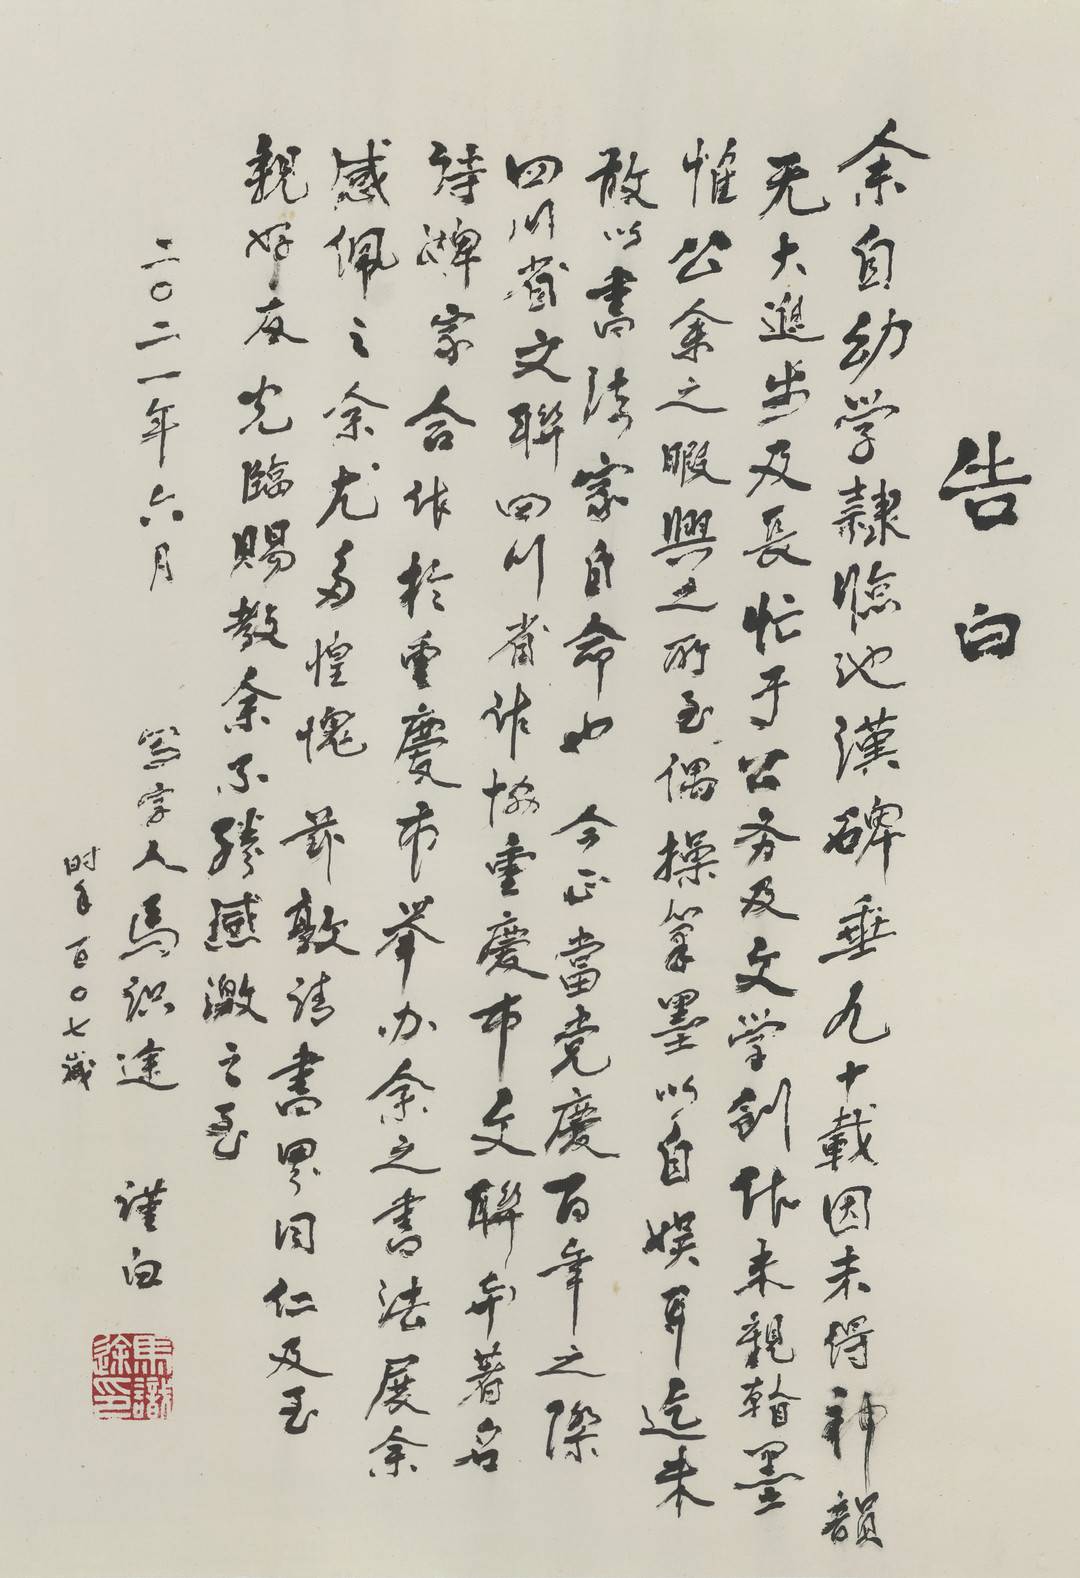 告白
余自幼学隸臨池漢碑垂九十載因未得神韻
无大進步及長忙于公务及文学創作未親翰墨
惟公余之暇興之所至偶操筆墨以自娛耳迄未
敢以書法家自命也今正當党慶百年之際
四川省文聯四川省作協重慶市文聯與著名
詩婢家合作於重慶市举办余之書法展余
感佩之余尤多惶愧茲敦请書界同仁及至
親好友光臨賜教余不勝感激之至
二〇二一年六月 寫字人馬识途 謹白
时年百〇七歲
馬識途印